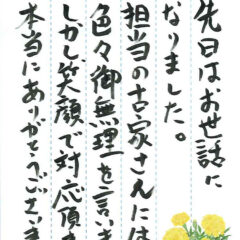 先日はお世話に
なりました。
担当の古家さんには
色々御無理を言いま
しかし笑顔で対応頂き
本当にありがとうございま